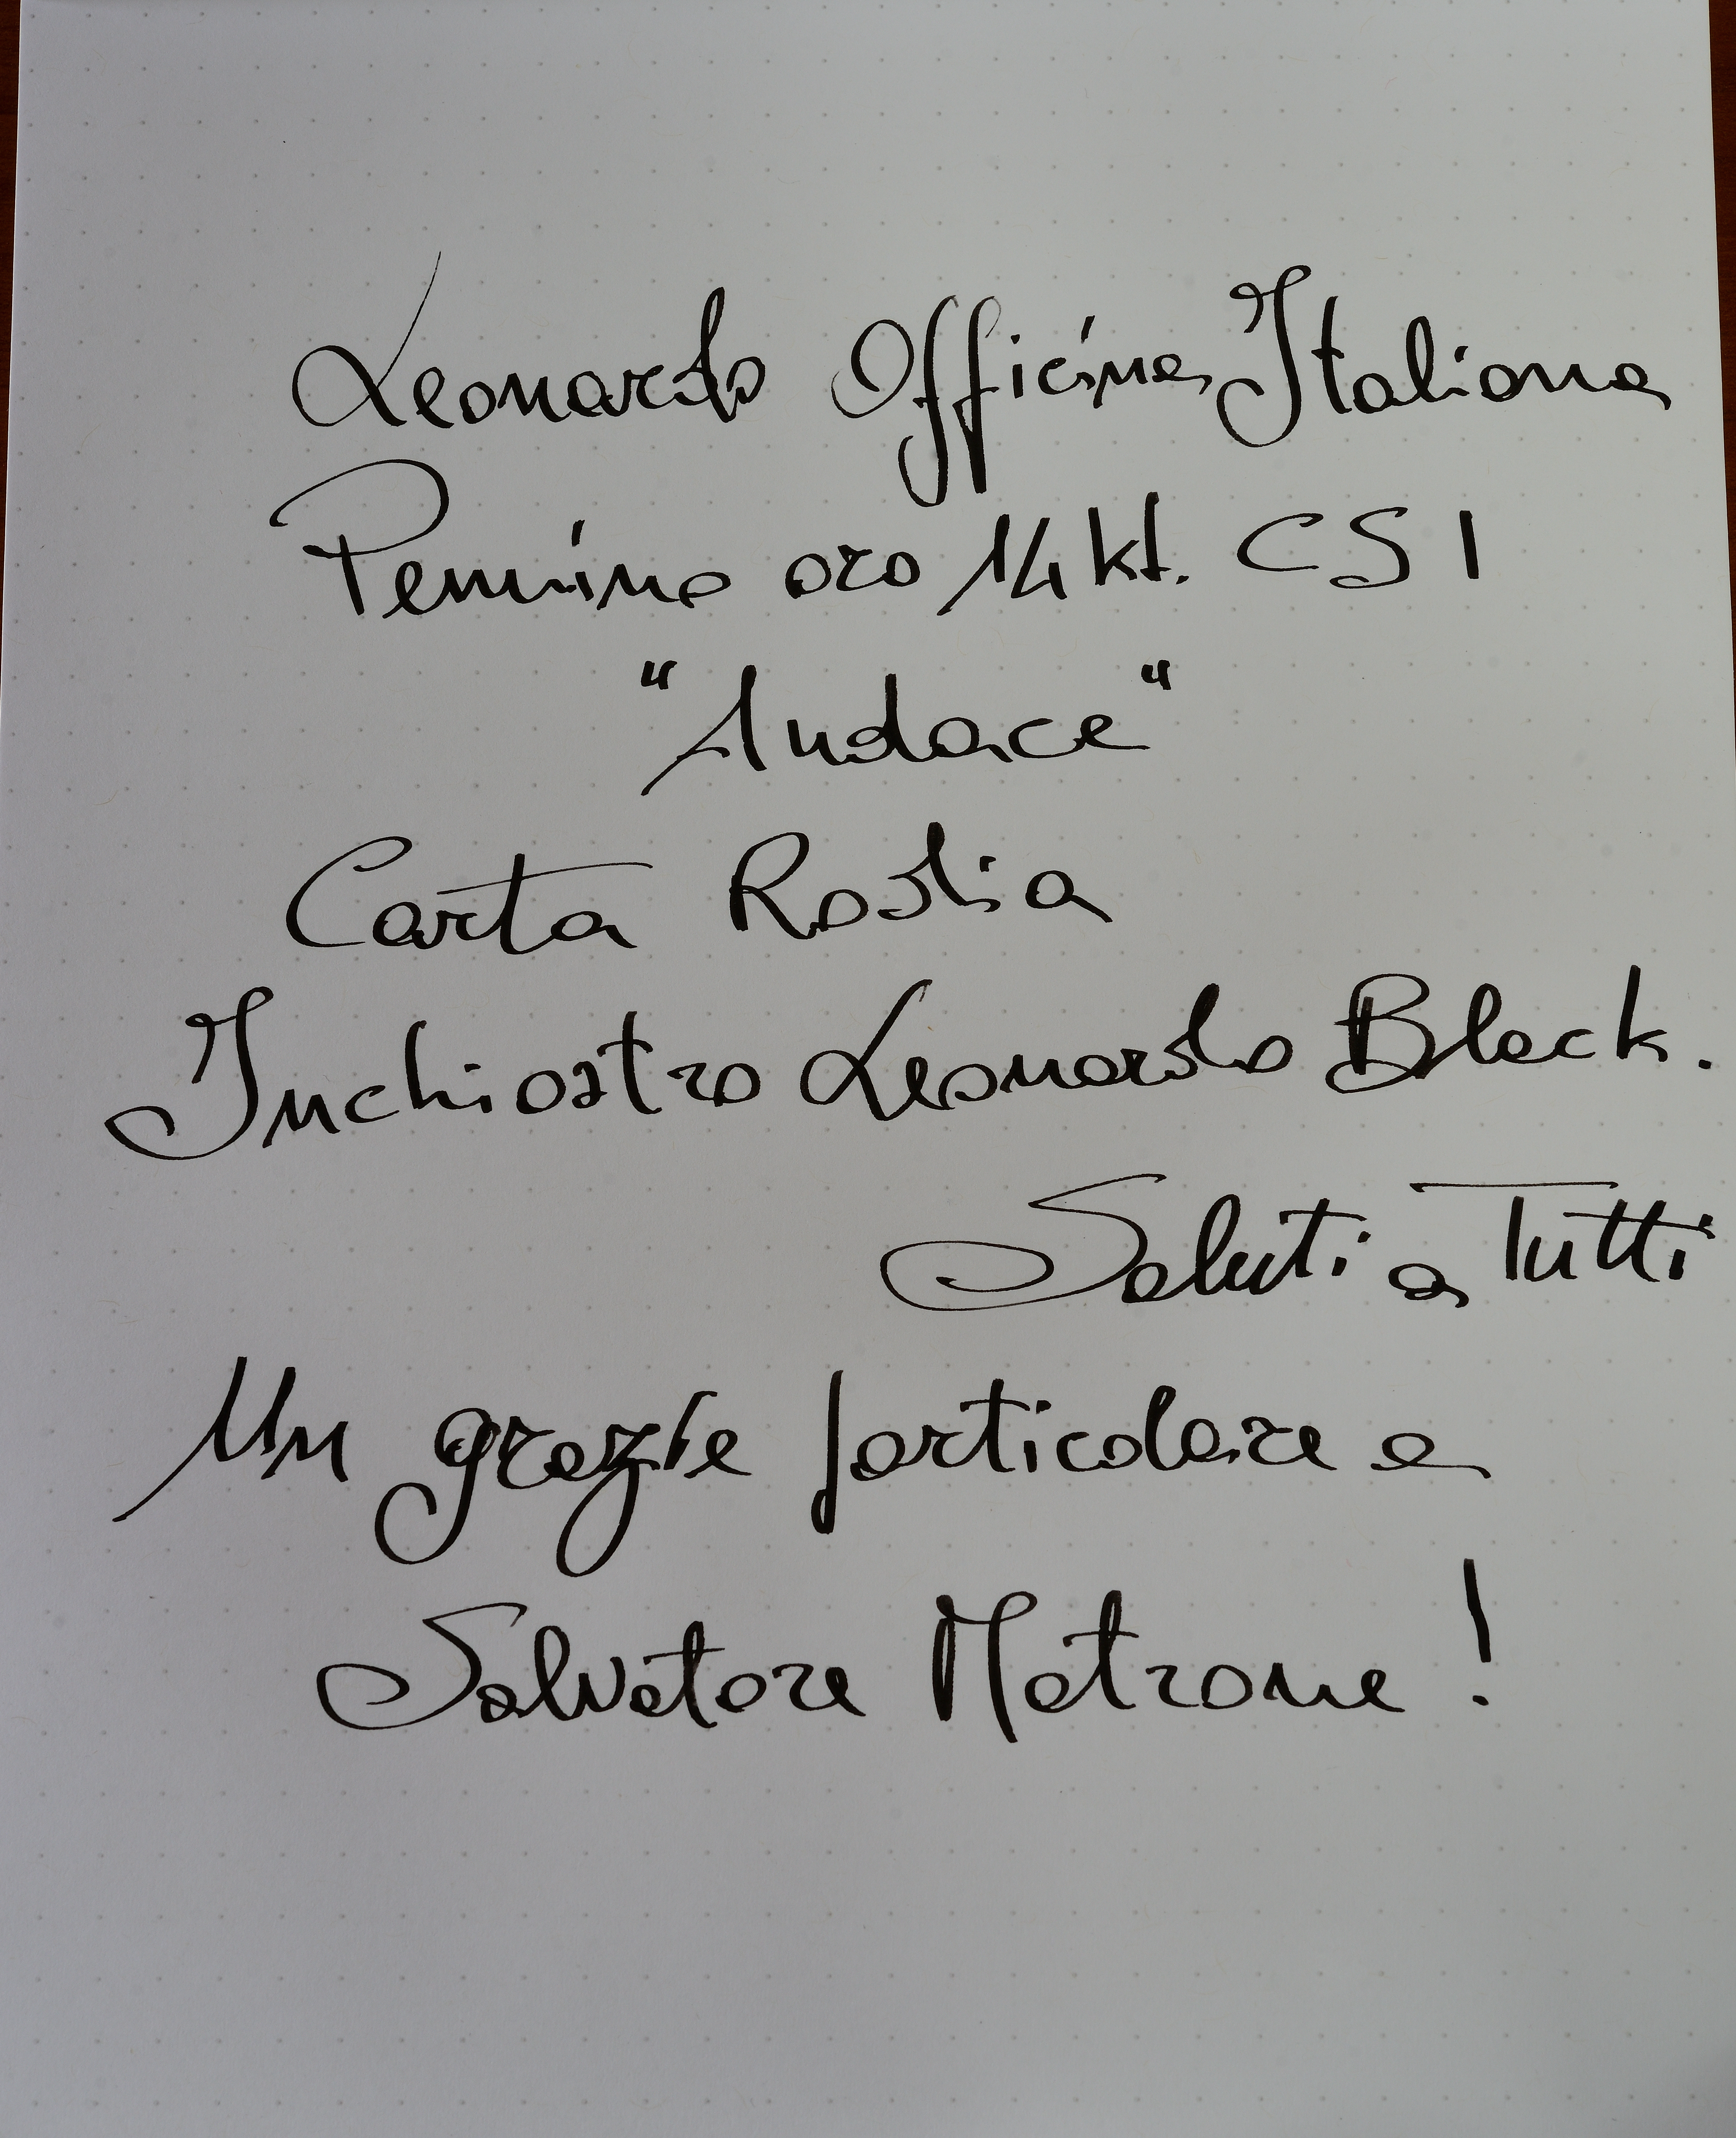 Leonardo Officina Italiana
Pennino oro 14 kt. CS1
"Audace"
Carta Rodia
Inchiostro Leonardo Black.
Saluti a Tutti
Un grazie particolare a
Salvatore Matrone!